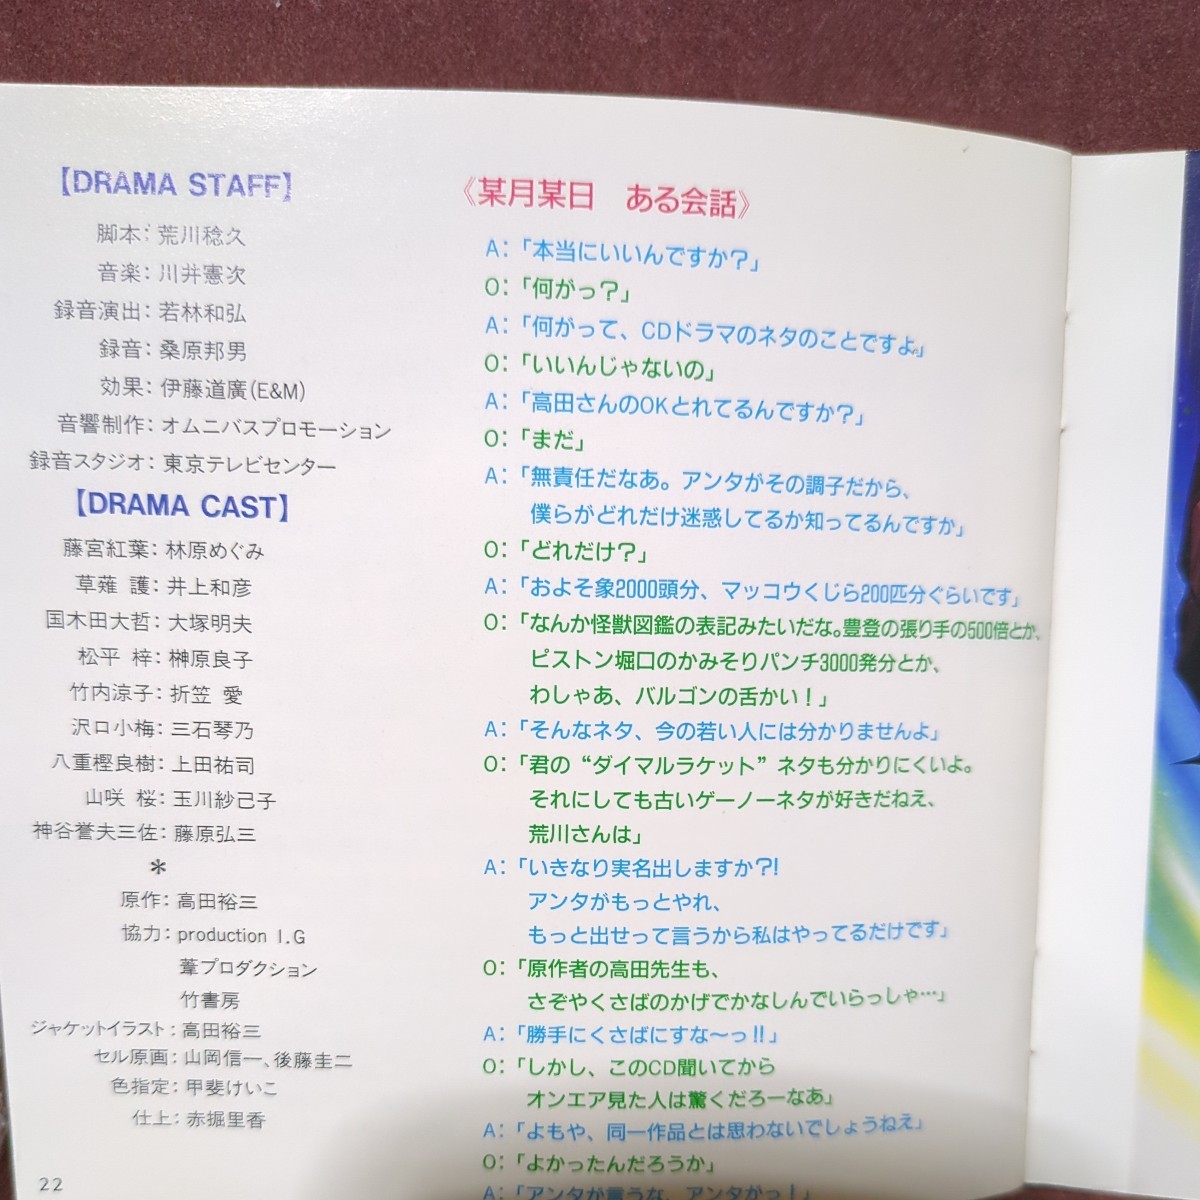 【DRAMA STAFF】
脚本：荒川稔久
音楽：川井憲次
録音演出：若林和弘
録音：桑原邦男
効果：伊藤道廣(E&M)
音響制作：オムニバスプロモーション
録音スタジオ：東京テレビセンター
【DRAMA CAST】
藤宮紅葉：林原めぐみ
草薙 護：井上和彦
国木田大哲：大塚明夫
松平 梓：榊原良子
竹内涼子：折笠 愛
沢口小梅：三石琴乃
八重樫良樹：上田祐司
山咲 桜：玉川紗己子
神谷誉夫三佐：藤原弘三
＊
原作：高田裕三
協力：production I.G
葦プロダクション
竹書房
ジャケットイラスト：高田裕三
セル原画：山岡信一、後藤圭二
色指定：甲斐けいこ
仕上：赤掘里香
22
《某月某日　ある会話》
A：「本当にいいんですか？」
O：「何がっ？」
A：「何がって、CDドラマのネタのことですよ」
O：「いいんじゃないの」
A：「高田さんのOKとれてるんですか？」
O：「まだ」
A：「無責任だなあ。アンタがその調子だから、
僕らがどれだけ迷惑してるか知ってるんですか」
O：「どれだけ？」
A：「およそ象2000頭分、マッコウくじら200匹分ぐらいです」
O：「なんか怪獣図鑑の表記みたいだな。豊登の張り手の500倍とか、
ピストン堀口のかみそりパンチ3000発分とか、
わしゃあ、バルゴンの舌かい！」
A：「そんなネタ、今の若い人には分かりませんよ」
O：「君の“ダイマルラケット”ネタも分かりにくいよ。
それにしても古いゲーノーネタが好きだねえ、
荒川さんは」
A：「いきなり実名出しますか?!
アンタがもっとやれ、
もっと出せって言うから私はやってるだけです」
O：「原作者の高田先生も、
さぞやくさばのかげでかなしんでいらっしゃ…」
A：「勝手にくさばにすな〜っ!!」
O：「しかし、このCD聞いてから
オンエア見た人は驚くだろーなあ」
A：「よもや、同一作品とは思わないでしょうねえ」
O：「よかったんだろうか」
A：「アンタが言うな、アンタがっ！」